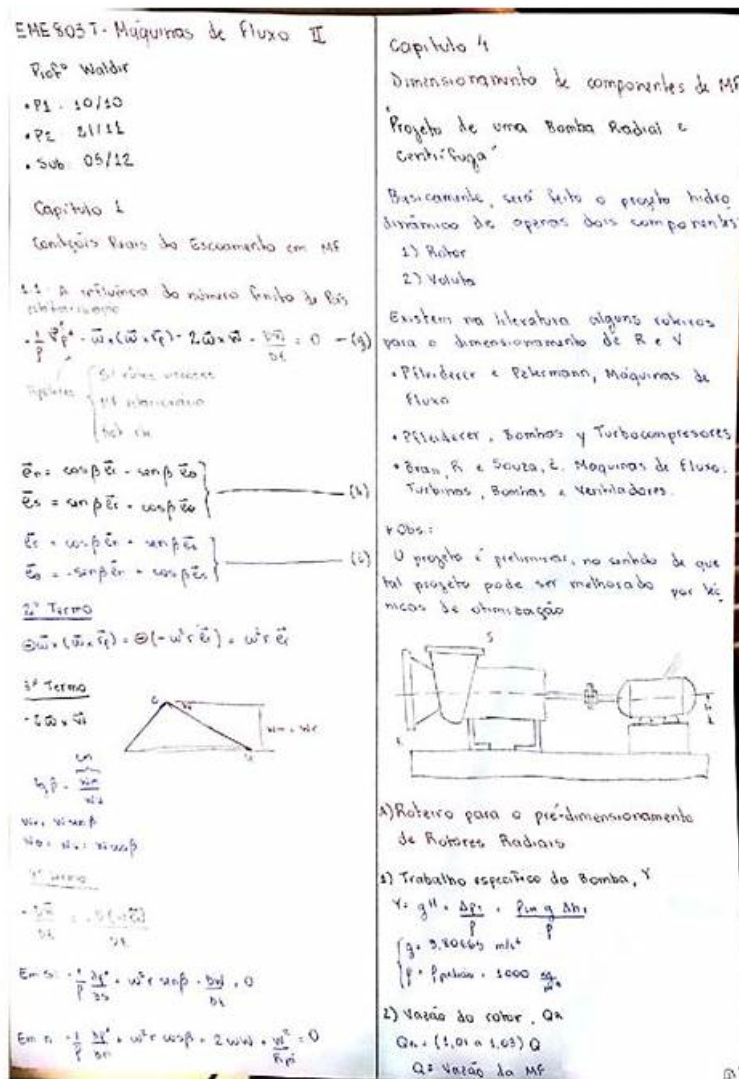 EME803T - Máquinas de Fluxo II
Profº Waldir
• P1 : 10/10
• P2 : 21/11
• Sub : 05/12
Capítulo 1
Condições Reais do Escoamento em MF
1.1 - A influência do número finito de Pás
-1/ρ ∇p* - ω⃗ x (ω⃗ x r⃗p) - 2ω⃗ x w⃗ - Dw⃗/Dt = 0
e⃗n = cosβ e⃗r - senβ e⃗θ
e⃗s = senβ e⃗r + cosβ e⃗θ
e⃗r = cosβ e⃗n + senβ e⃗s
e⃗θ = -senβ e⃗n + cosβ e⃗s
2º Termo
⊖ω⃗ x (ω⃗ x r⃗p) = ⊖(-ω²r e⃗r) = ω²r e⃗r
3º Termo
-2ω⃗ x w⃗
4º Termo
Em s: -1/ρ ∂p*/∂s + ω²r senβ - Dw/Dt = 0
Em n: -1/ρ ∂p*/∂n + ω²r cosβ + 2ωw + w²/Rpá = 0
Capítulo 4
Dimensionamento de componentes de MF
"Projeto de uma Bomba Radial e
Centrífuga"
Basicamente, será feito o projeto hidro
dinâmico de apenas dois componentes:
1) Rotor
2) Voluta
Existem na literatura alguns roteiros
para o dimensionamento de R e V
• Pfleiderer e Petermann, Máquinas de
Fluxo
• Pfleiderer, Bombas y Turbocompresores
• Bran, R e Souza, Z. Maquinas de Fluxo:
Turbinas, Bombas e Ventiladores.
* Obs.:
O projeto é preliminar, no sentido de que
tal projeto pode ser melhorado por téc
nicas de otimização
S
A) Roteiro para o pré-dimensionamento
de Rotores Radiais
1) Trabalho específico da Bomba, Y
Y = gH = Δpt/ρ
g = 9.80665 m/s²
ρ = ρpadrão = 1000 kg/m³
2) Vazão do rotor, QR
QR = (1,01 a 1,03) Q
Q = Vazão da MF